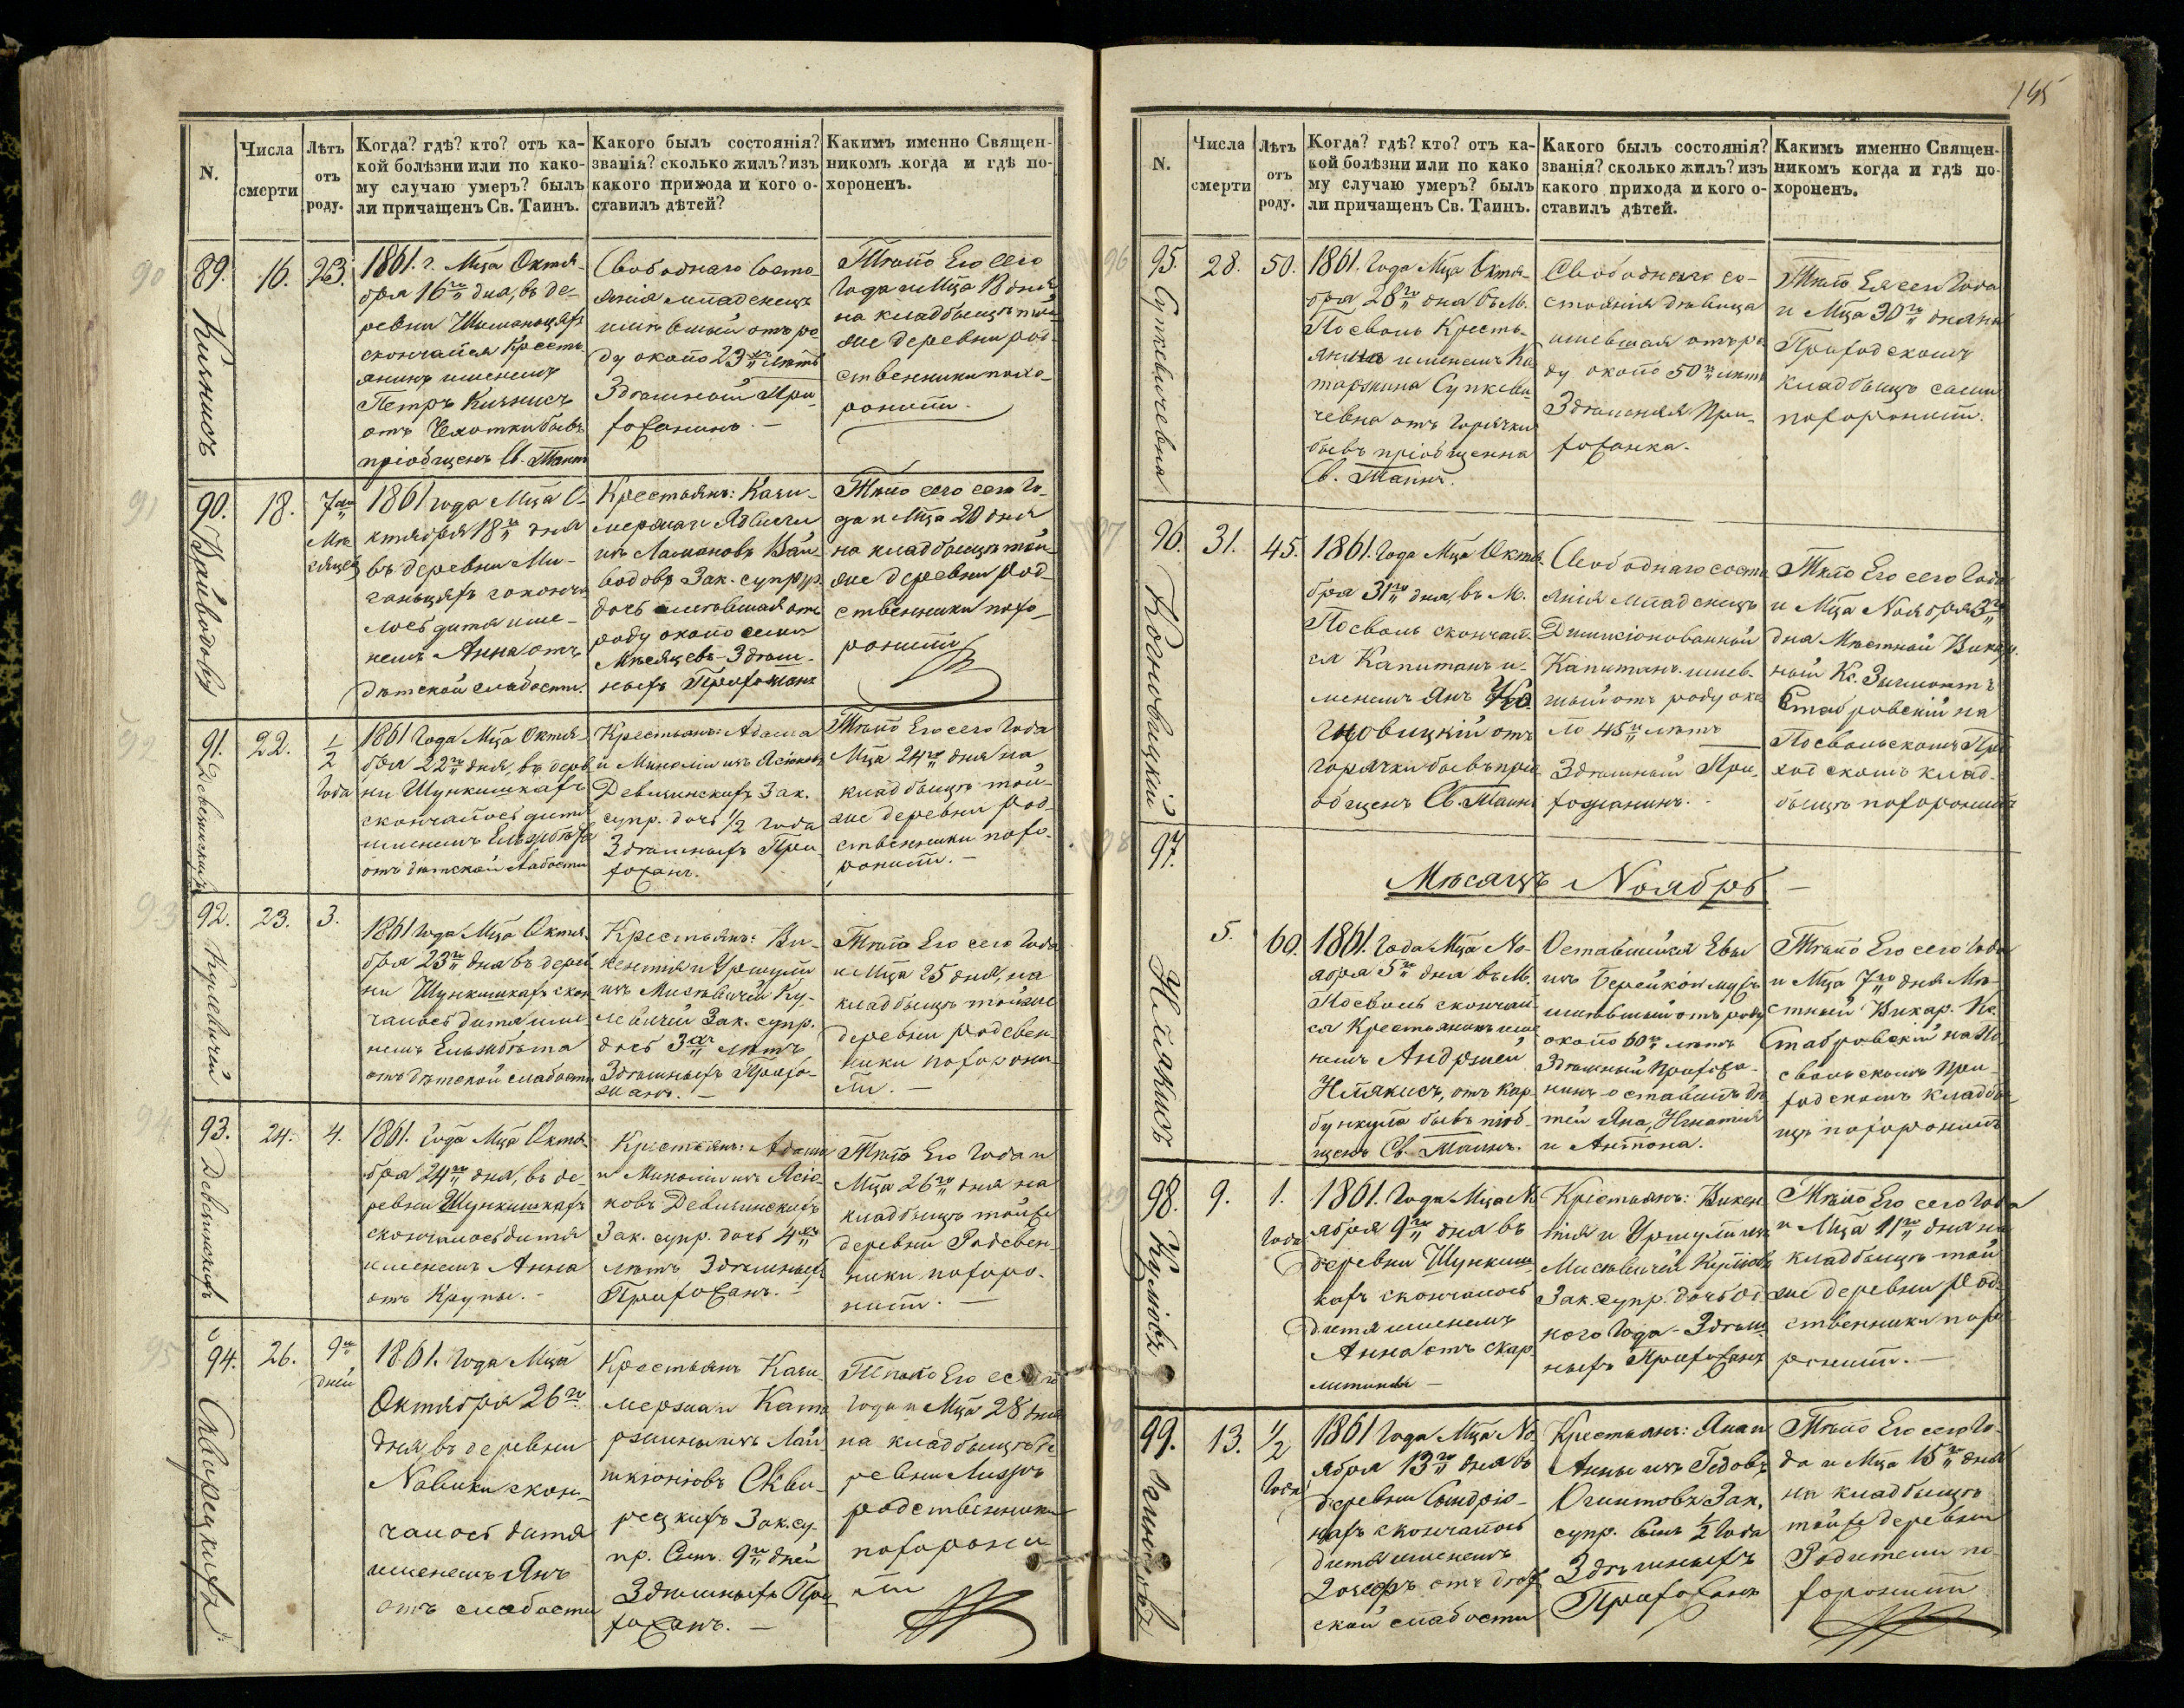 145
N.
Числа смерти
Лѣтъ отъ роду.
Когда? гдѣ? кто? отъ ка-
кой болѣзни или по како-
му случаю умеръ? былъ
ли причащенъ Св. Таинъ.
Какого былъ состоянія?
званія? сколько жилъ? изъ
какого прихода и кого о-
ставилъ дѣтей?
Какимъ именно Священ-
никомъ когда и гдѣ по-
хороненъ.
90
89.
16.
23.
1861. г. Мца Октя-
бря 16го дня, въ де-
ревни
скончался Кресть-
янинъ именемъ
Петръ
отъ Чахотки бывъ
пріобщенъ Св. Таинъ
Свободнаго состо-
янія младенецъ
имѣвшый отъ ро-
ду около 23хъ лѣтъ
Здѣшной При-
хожанинъ. —
Тѣло Его сего
Года и Мца 18 дня
на кладбыщѣ той-
же деревни род-
ственники похо-
ронили.
91
90. Вайводовъ
18.
7ми
Мѣ-
сяцей
1861 года Мца О-
ктября 18го дня
въ деревни Ми-
ганцяхъ скончa-
лось дитя име-
немъ Анна отъ
дѣтской слабости.
Крестьянъ: Кази-
мержа и Ядвиги
изъ Ламановъ Вай-
водовъ Зак. супр.
дочь имѣвшая отъ
роду около семи
Мѣсяцевъ - Здѣш-
ныхъ Прихожанъ
Тѣло его сего Го-
да и Мца 20 дня
на кладбыщѣ той-
же деревни Род-
ственники похо-
ронили
92
91. Девгинскихъ
22.
1/2
Года
1861 Года Мца Октя-
бря 22го дня, въ дерев-
ни Шункишкахъ
скончалось дитя
именемъ Ельжбѣта
отъ дѣтской слабости
Крестьянъ: Адама
и Михалины изъ
Девгинскихъ Зак.
супр. дочь 1/2 Года
Здѣшныхъ При-
хожанъ.
Тѣло Его сего Года
Мца 24го дня на
кладбыщѣ той-
же деревни род-
ственники похо-
ронили. —
93
92. Кулевичей
23.
3.
1861 Года Мца Октя-
бря 23го дня въ дерев-
ни Шункишкахъ скон-
чалось дитя име-
немъ Ельжбѣта
отъ дѣтской слабости
Крестьянъ: Ви-
кентія и Уршули
изъ Мисѣвичей Ку-
левичей Зак. супр.
дочь 3хъ лѣтъ
Здѣшныхъ Прихо-
жанъ. —
Тѣло Его сего Года
и Мца 25 дня, на
кладбыщѣ тойже
деревни родсвен-
ники похорони-
ли. —
94
93. Девгинскихъ
24.
4.
1861. Года Мца Октя-
бря 24го дня, въ де-
ревни Шункишкахъ
скончалось дитя
именемъ Анна
отъ Крупы. -
Крестьянъ: Адама
и Михалины изъ Ясю-
ковъ Девгинскихъ
Зак. супр. дочь 4хъ
лѣтъ Здѣшныхъ
Прихожанъ. -
Тѣло Его Года и
Мца 26го дня на
кладбыщѣ тойже
деревни Родсвен-
ники похоро-
нили. —
95
94. Сквирецкихъ
26.
9ти
дней
1861. Года Мца
Октября 26го
дня въ деревни
Новики скон-
чалось дитя
именемъ Янъ
отъ слабости
Крестьянъ Кази-
мержа и Ката-
ржины изъ Лай-
тконіовъ Скви-
рецкихъ Зак. су-
пр. Сынъ. 9ти дней
Здѣшныхъ При-
хожанъ. —
Тѣло Его сего
Года и Мца 28 дня
на кладбыщѣ де-
ревни
родственники
похорони-
ли
N.
Числа смерти
Лѣтъ отъ роду.
Когда? гдѣ? кто? отъ ка-
кой болѣзни или по како
му случаю умеръ? былъ
ли причащенъ Св. Таинъ.
Какого былъ состоянія?
званія? сколько жилъ? изъ
какого прихода и кого о-
ставилъ дѣтей.
Какимъ именно Священ-
никомъ когда и гдѣ по-
хороненъ.
96
95. Суткевичевна
28.
50.
1861. Года Мца Октя-
бря 28го дня въ М.
Посволь Кресть-
янка именемъ Ка-
таржина Суткеви-
чевна отъ Горячки
бывъ пріобщенна
Св. Таинъ.
Свободнаго со-
стоянія дѣвица
имевшая отъ ро-
ду около 50ти лѣтъ
Здѣшняя При-
хожанка.
Тѣло Ея сего Года
и Мца 30го дня на
Приходскомъ
кладбыщѣ сами
похоронили.
97
96. Когновицкій
31.
45.
1861. Года Мца Октя-
бря 31го дня, въ М.
Посволь скончал-
ся Капитанъ и-
менемъ Янъ Ко-
гновицкій отъ
горячки бывъ прі-
общенъ Св. Таинъ
Свободнаго состо-
янія младенецъ
Димисіонованный
Капитанъ имев-
шый отъ роду око-
ло 45ти лѣтъ
Здѣшный При-
хожанинъ. -
Тѣло Его сего Года
и Мца Ноября 3го
дня Мѣстной Викар-
ный Кс. Зигмонтъ
Стабровскій на
Посвольскомъ При-
ходскомъ клад-
быщѣ похоронилъ
98
97.
Мѣсяцъ Ноябрь —
5.
60.
1861. Года Мца Но-
ября 5го дня въ М.
Посволь скончал-
ся Крестьянинъ име-
немъ Андржей
отъ Кар-
бункула бывъ пріоб-
щенъ Св. Таинъ.
Оставшійся Евы
изъ мужъ
имѣвшый отъ роду
около 60ти лѣтъ
Здѣшный Прихожа-
нинъ оставилъ дѣ-
тей Яна, Игнатія
и Антона.
Тѣло Его сего Года
и Мца 7го дня Мѣ-
стный Викар. Кс.
Стабровскій на По-
свольскомъ При-
ходскомъ кладбы-
щѣ похоронилъ
99
98.
9.
1.
Года
1861. Года Мца Но-
ября 9го дня въ
деревни Шункиш-
кахъ скончалось
дитя именемъ
Анна отъ скар-
латины —
Крестьянъ: Викен-
тія и Уршули изъ
Мисѣвичей
Зак. супр. дочь од-
ного Года - Здѣш-
ныхъ Прихожанъ
Тѣло Его сего Года
и Мца 11го дня на
кладбыщѣ той
же деревни Род-
ственники похо-
ронили. —
99.
13.
1/2
Года
1861 Года Мца Но-
ября 13го дня въ
деревни
скончалось
дитя именемъ
отъ дѣт-
ской слабости
Крестьянъ: Яна и
Анны изъ Гедовъ
Зак.
супр. сынъ 1/2 Года
Здѣшныхъ
Прихожанъ
Тѣло Его сего Го-
да и Мца 15го дня
на кладбыщѣ
тойже деревни
Родители по-
хоронили